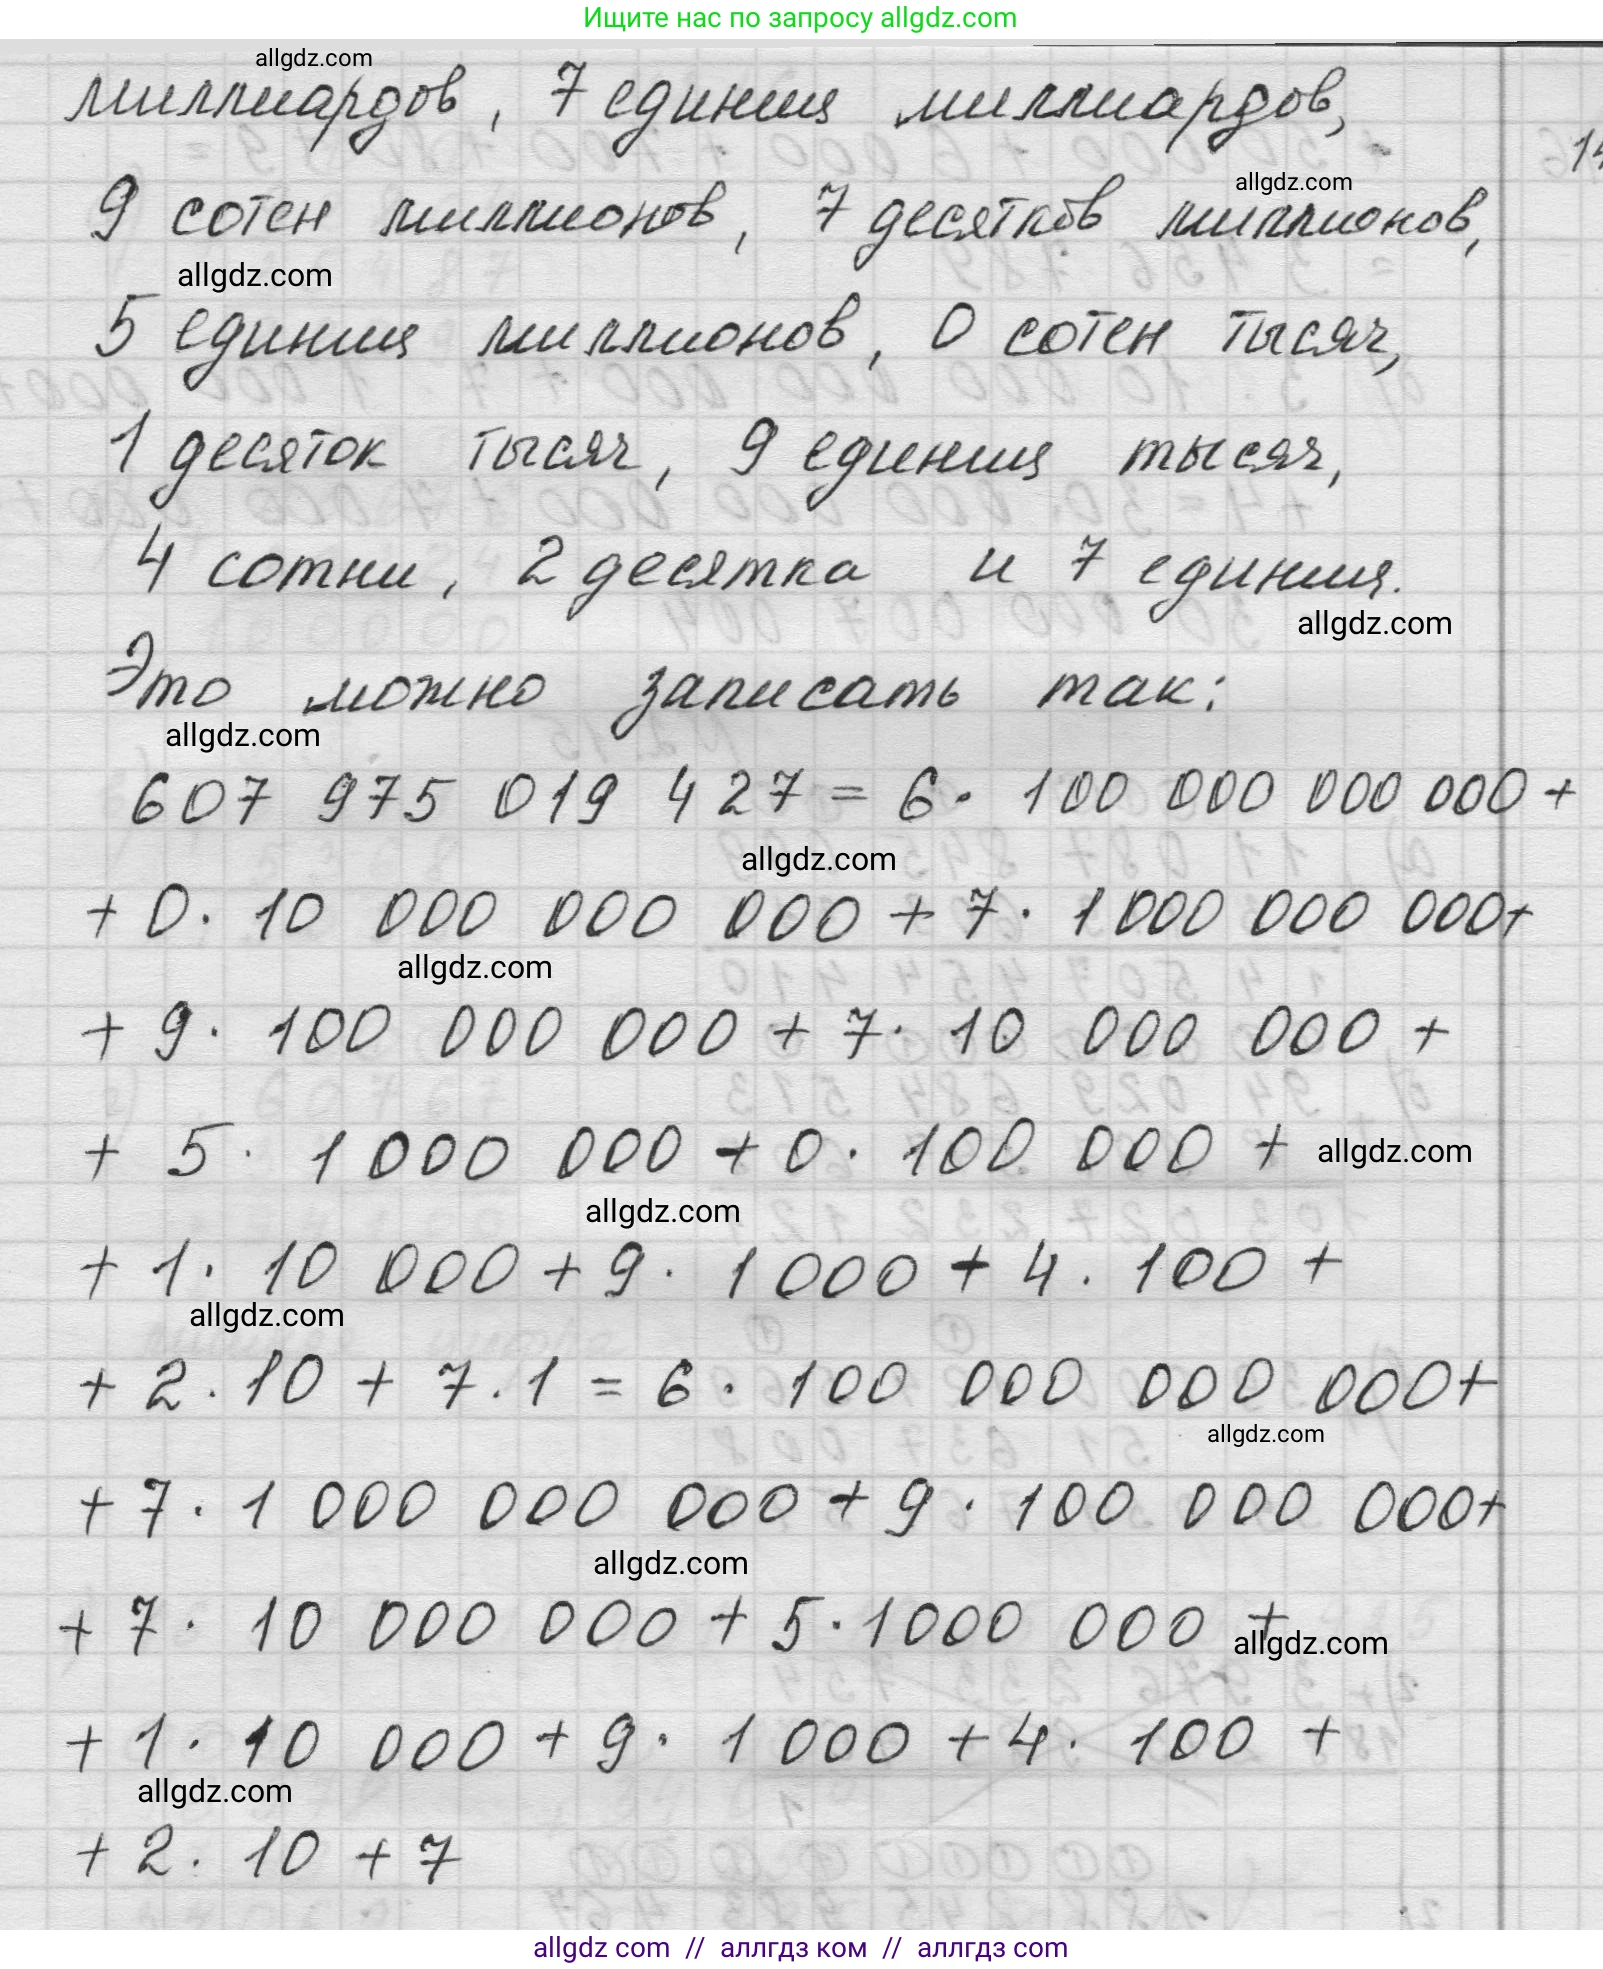 Ищите нас по запросу allgdz.com
allgdz.com
миллиардов, 7 единиц миллиардов,
14
allgdz.com
9 сотен миллионов, 7 десятков миллионов,
allgdz.com
5 единиц миллионов, 0 сотен тысяч,
1 десяток тысяч, 9 единиц тысяч,
4 сотни, 2 десятка и 7 единиц.
allgdz.com
Это можно записать так:
allgdz.com
607 975 019 427 = 6 · 100 000 000 000 +
allgdz.com
+ 0 · 10 000 000 000 + 7 · 1 000 000 000 +
allgdz.com
+ 9 · 100 000 000 + 7 · 10 000 000 +
+ 5 · 1 000 000 + 0 · 100 000 + allgdz.com
allgdz.com
+ 1 · 10 000 + 9 · 1 000 + 4 · 100 +
allgdz.com
+ 2 · 10 + 7 · 1 = 6 · 100 000 000 000 +
allgdz.com
+ 7 · 1 000 000 000 + 9 · 100 000 000 +
allgdz.com
+ 7 · 10 000 000 + 5 · 1 000 000 +
allgdz.com
+ 1 · 10 000 + 9 · 1 000 + 4 · 100 +
allgdz.com
+ 2 · 10 + 7
allgdz com // аллгдз ком // аллгдз com